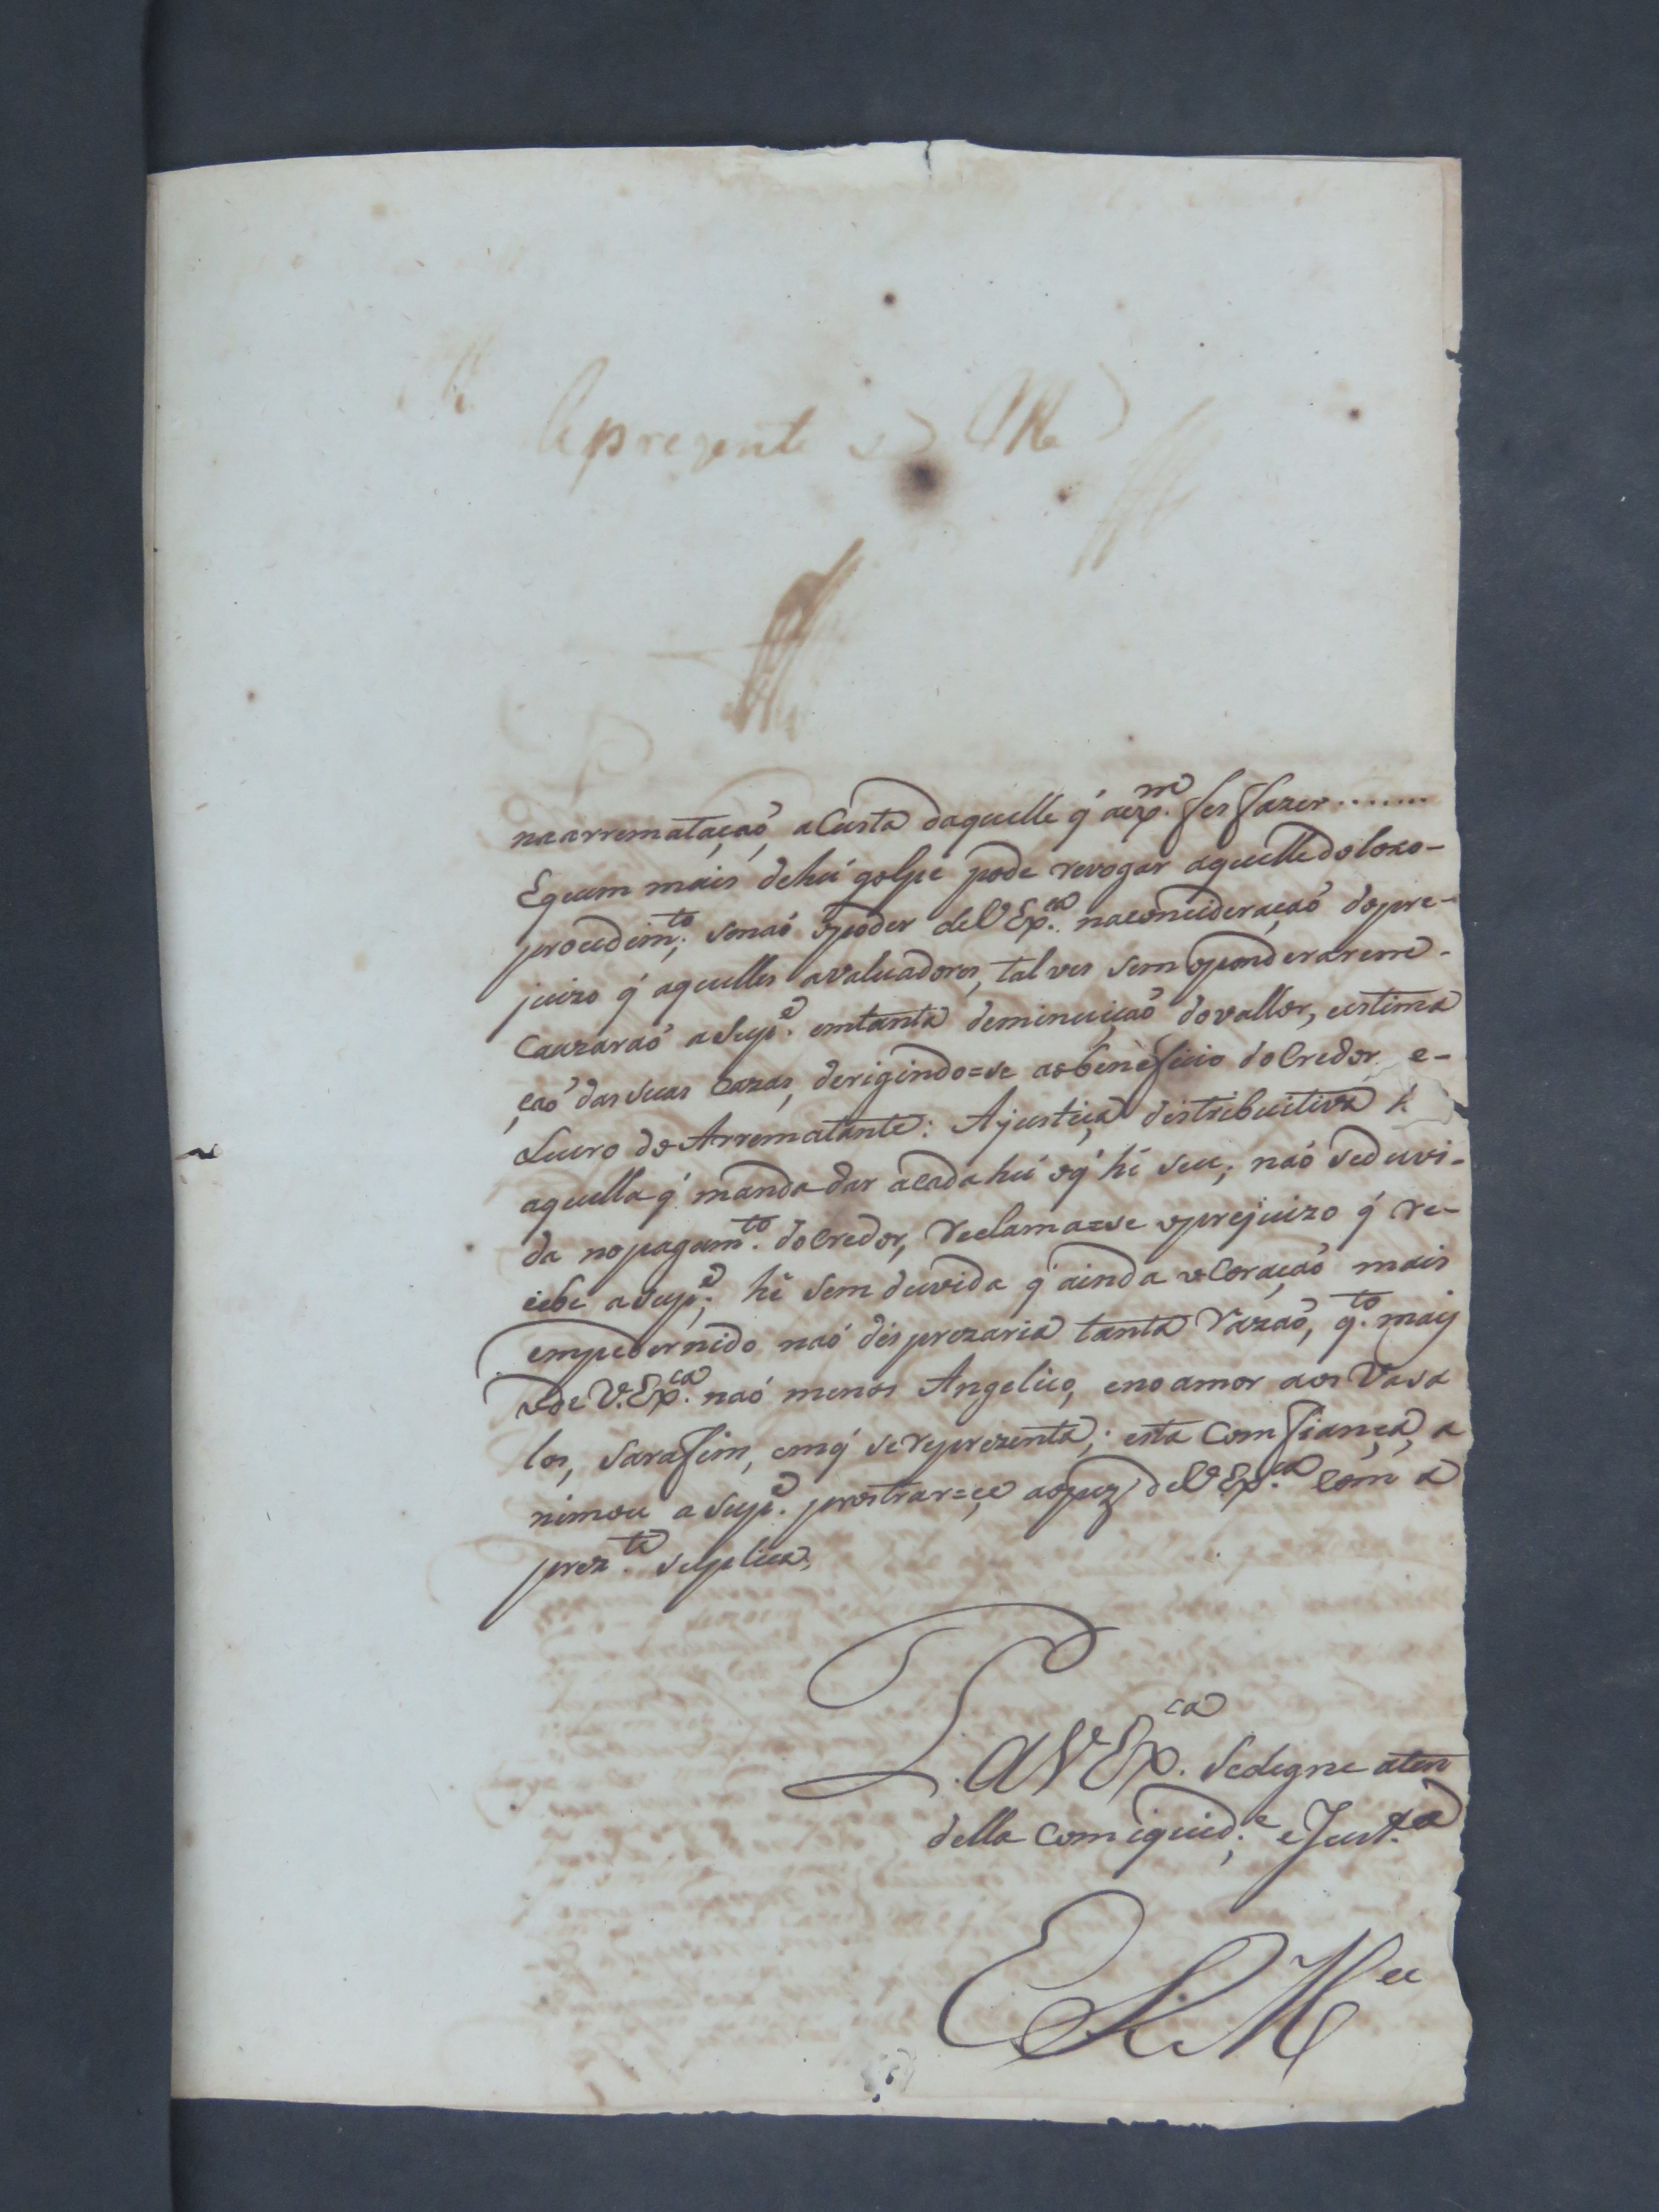 Reprezente
na arremataçaó, a Custa daquelle q́ a exp.m fes fazer ........
E quem mais de hú golpe pode revogar aquelle dolozo-
procedim.to; senaó o poder de V Ex.ca na conçideraçaó do pre-
juizo q́ aquelles avaluadores, tal ves sem o ponderarem e-
Cauzaraó a Sup.e em tanta deminuiçaó do vallor, e estima
çaó das suas Cazas, derigindo=se ao beneficio do Credor, e-
Lucro do Arrematante: A justiça distribuitiva h
aquella q́ manda dar a cada hú o q́ hé seu; naó se duvi-
da no pagam.to do Credor, reclama=se o prejuizo q́ re-
cebe a sup.e; hé sem duvida q́ ainda o Coraçaó mais
empedernido naó desprezaria tanta razaó, q.to mais
o de V. Ex.ca naó menos Angelico, e no amor aos Vasa
los, Sarafim, em q́ se reprezenta; esta Comfiança, a
nimou a sup.e prostrar=çe aos pez de V Ex.ca com a
prez.te suplica,
P. a V Ex.ca se digne aten
della com iquid.e, e Just.ça
E R M.ce